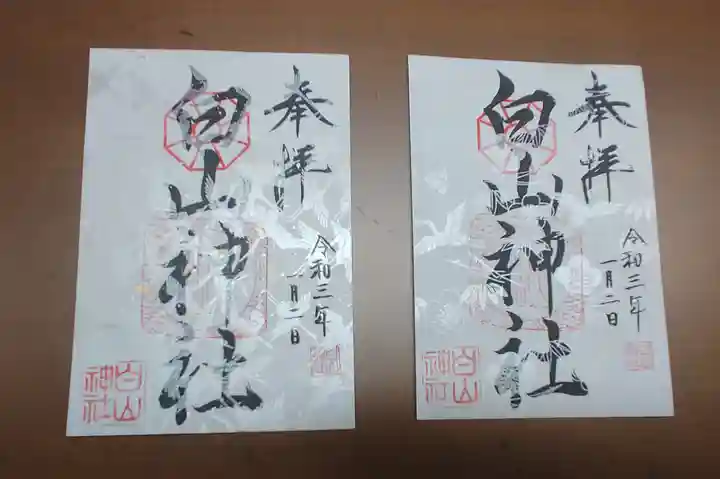 奉拝
白山神社
令和三年
一月二日
白山
神社
奉拝
白山神社
令和三年
一月二日
白山
神社